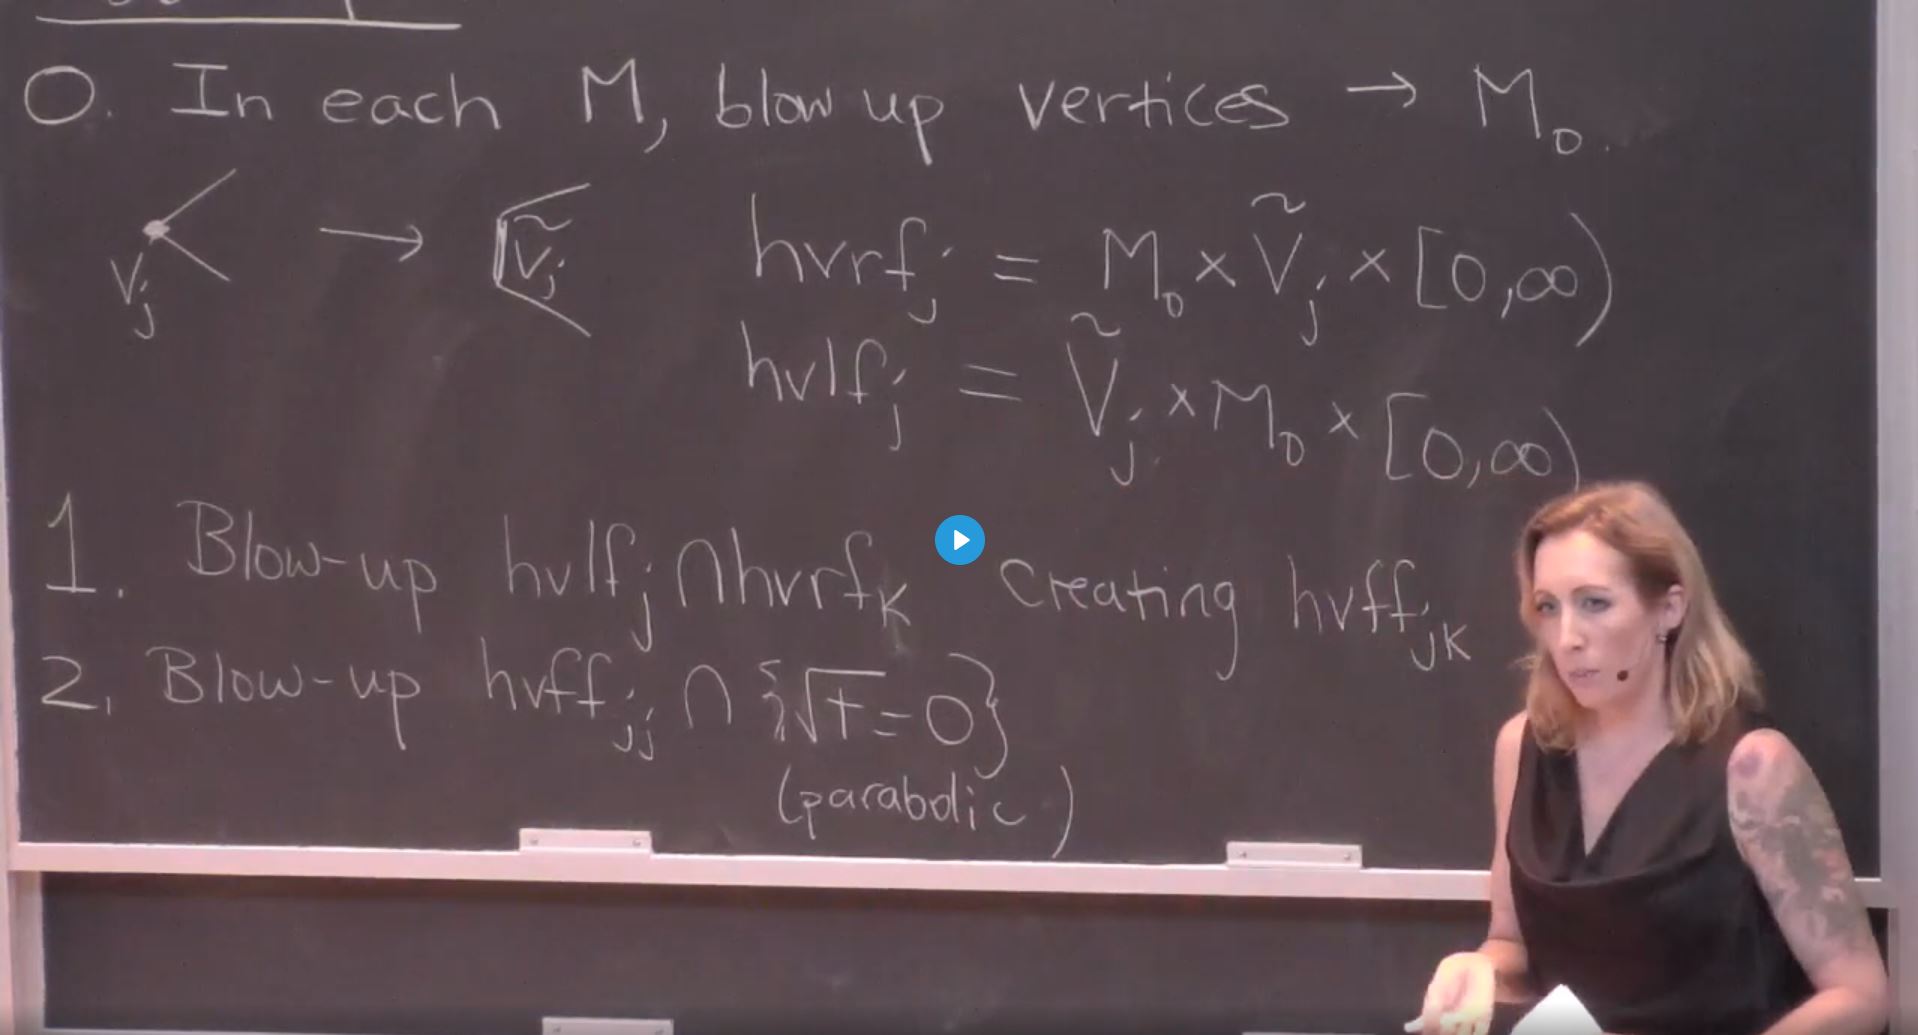 0. In each M, blow up vertices → M₀.
Vⱼ → Ṽⱼ hvrfⱼ = M₀ × Ṽⱼ × [0,∞)
hvlfⱼ = Ṽⱼ × M₀ × [0,∞)
1. Blow-up hvlfⱼ ∩ hvrfₖ creating hvffⱼₖ
2. Blow-up hvffⱼⱼ ∩ {√t = 0}
(parabolic)